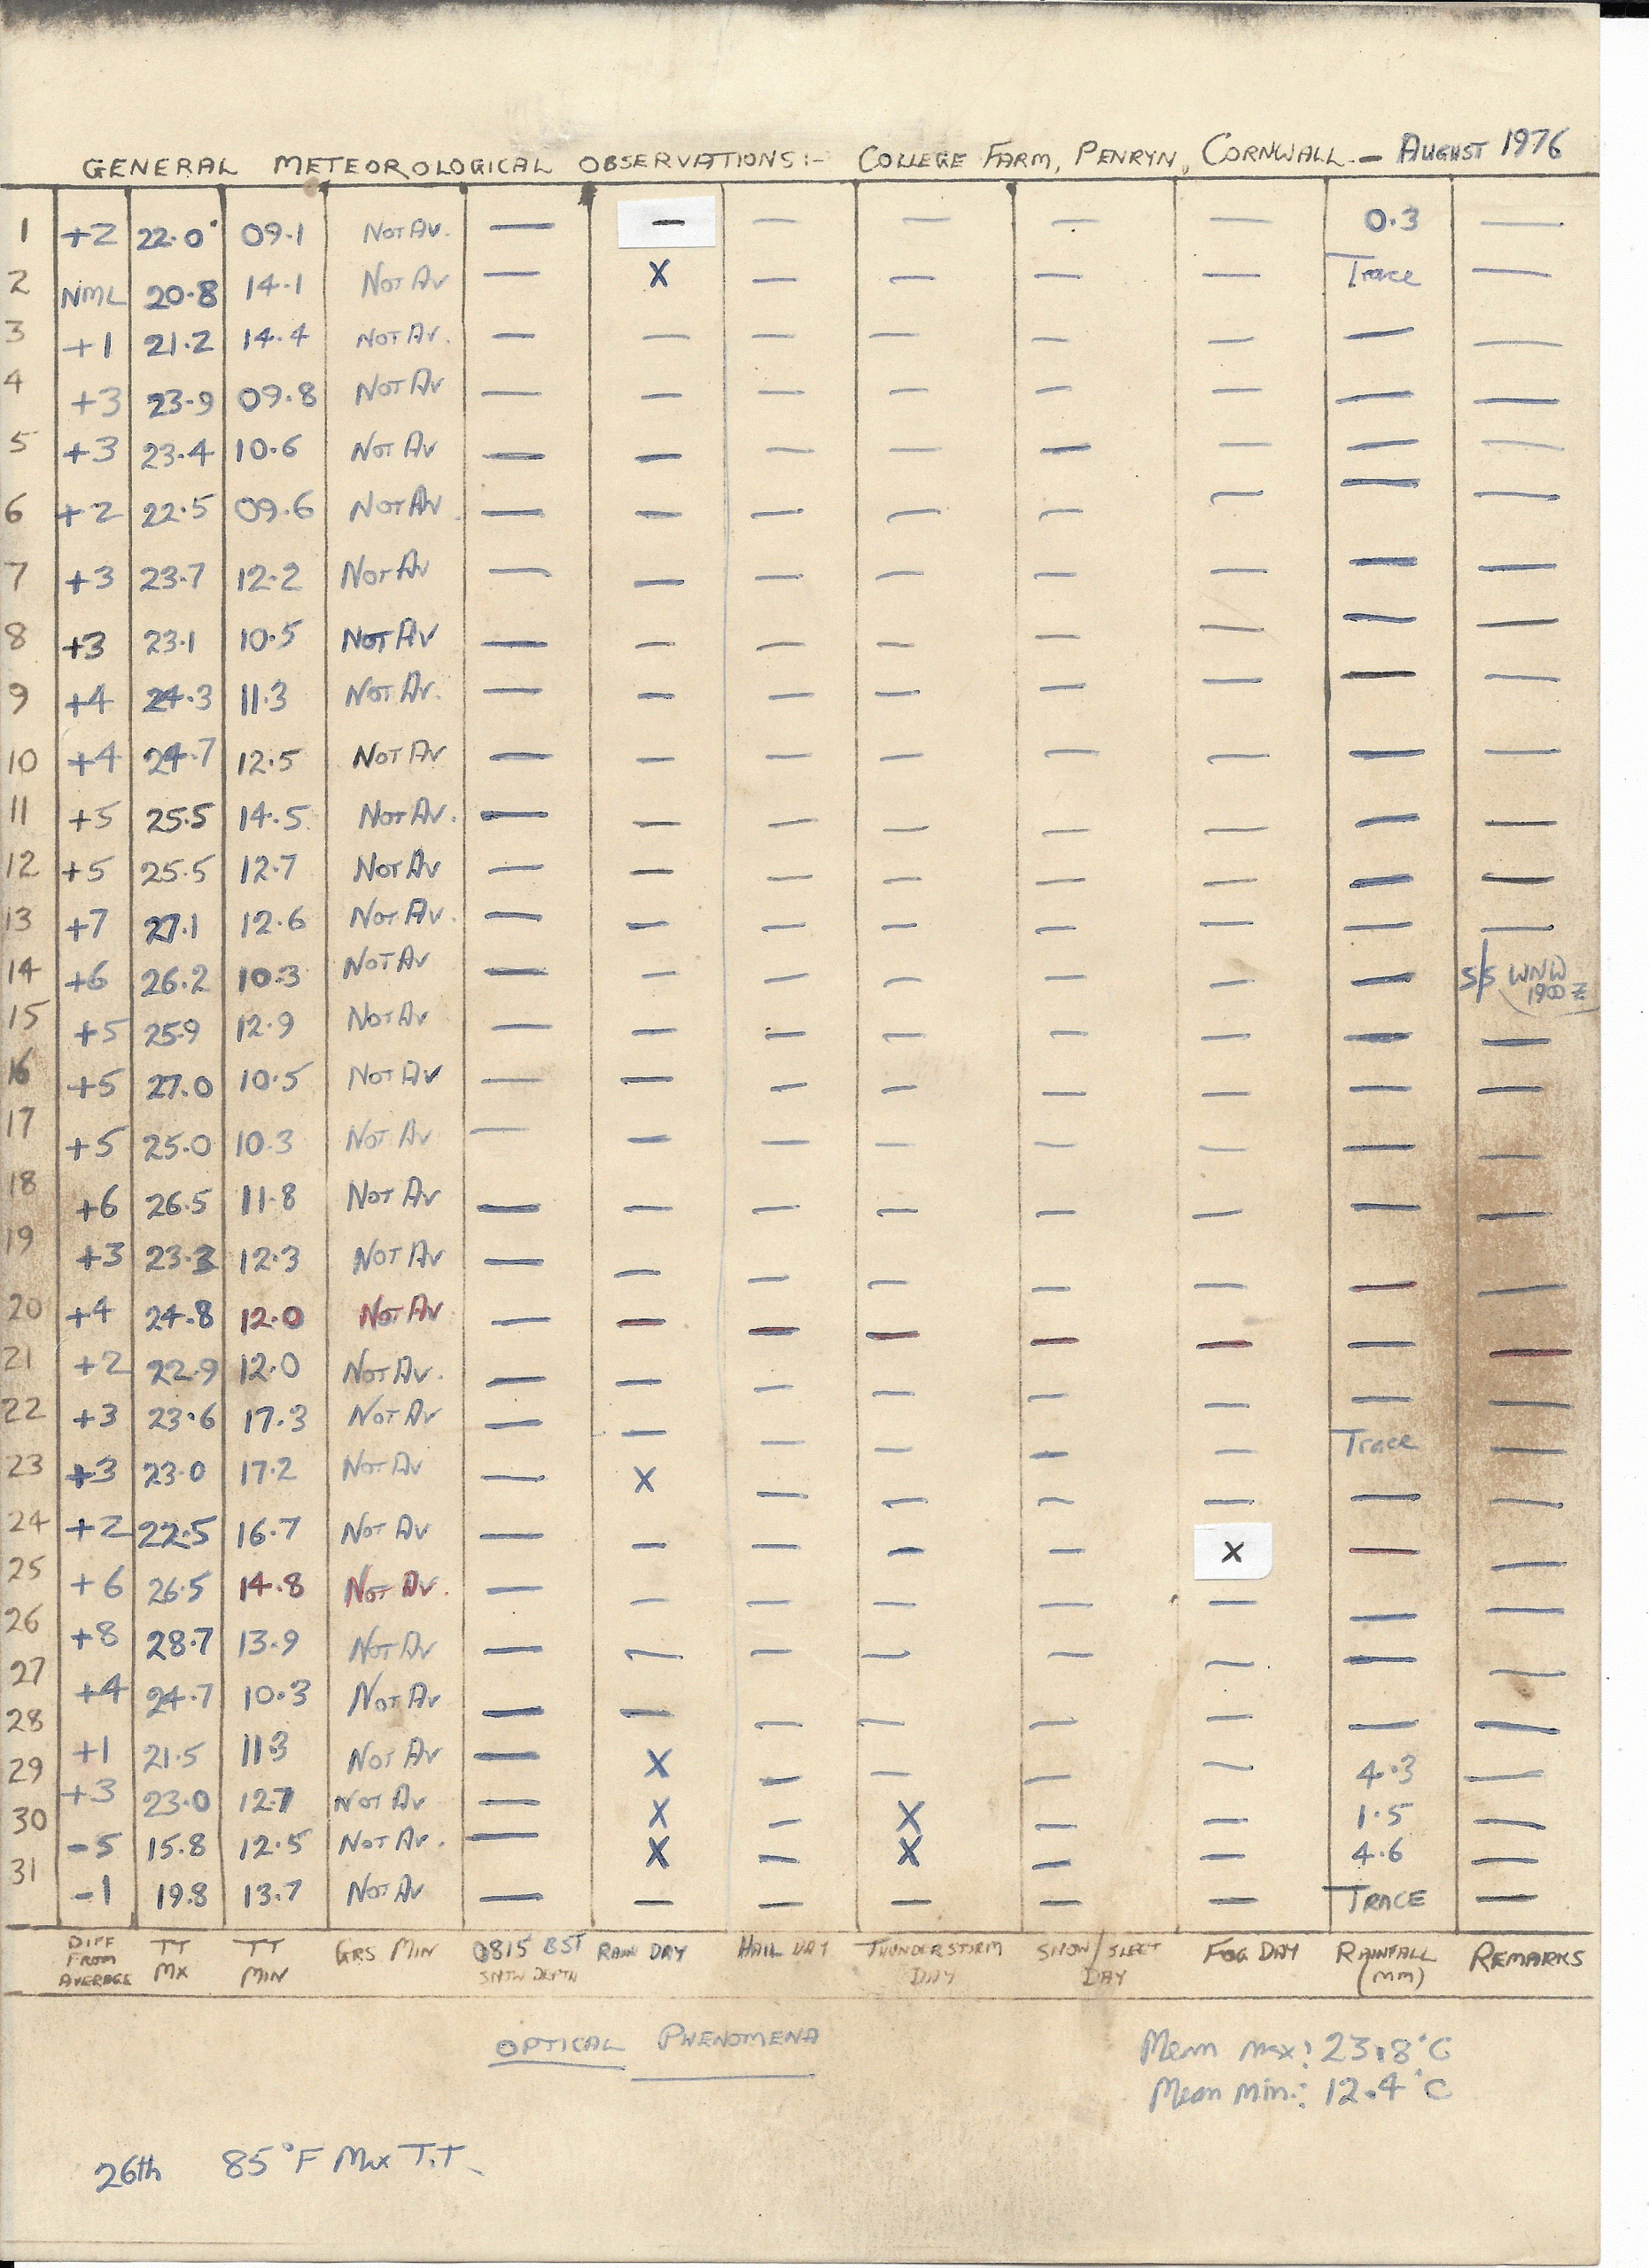 GENERAL METEOROLOGICAL OBSERVATIONS:- COLLEGE FARM, PENRYN, CORNWALL. - AUGUST 1976
1 +2 22.0° 09.1 NOT AV. — — — — — — 0.3 —
2 NML 20.8 14.1 NOT AV — X — — — — Trace —
3 +1 21.2 14.4 NOT AV. — — — — — — — —
4 +3 23.9 09.8 NOT AV — — — — — — — —
5 +3 23.4 10.6 NOT AV — — — — — — — —
6 +2 22.5 09.6 NOT AV — — — — — — — —
7 +3 23.7 12.2 NOT AV — — — — — — — —
8 +3 23.1 10.5 NOT AV — — — — — — — —
9 +4 24.3 11.3 NOT AV. — — — — — — — —
10 +4 24.7 12.5 NOT AV — — — — — — — —
11 +5 25.5 14.5 NOT AV. — — — — — — — —
12 +5 25.5 12.7 NOT AV — — — — — — — —
13 +7 27.1 12.6 NOT AV. — — — — — — — —
14 +6 26.2 10.3 NOT AV — — — — — — — S/S WNW 1900 Z
15 +5 25.9 12.9 NOT AV — — — — — — — —
16 +5 27.0 10.5 NOT AV — — — — — — — —
17 +5 25.0 10.3 NOT AV — — — — — — — —
18 +6 26.5 11.8 NOT AV — — — — — — — —
19 +3 23.3 12.3 NOT AV — — — — — — — —
20 +4 24.8 12.0 NOT AV — — — — — — — —
21 +2 22.9 12.0 NOT AV. — — — — — — — —
22 +3 23.6 17.3 NOT AV — — — — — — Trace —
23 +3 23.0 17.2 NOT AV — X — — — — — —
24 +2 22.5 16.7 NOT AV — — — — — X — —
25 +6 26.5 14.8 NOT AV. — — — — — — — —
26 +8 28.7 13.9 NOT AV — — — — — — — —
27 +4 24.7 10.3 NOT AV — — — — — — — —
28 +1 21.5 11.3 NOT AV — X — — — — 4.3 —
29 +3 23.0 12.7 NOT AV — X — X — — 1.5 —
30 -5 15.8 12.5 NOT AV. — X — X — — 4.6 —
31 -1 19.8 13.7 NOT AV — — — — — — TRACE —
DIFF FROM AVERAGE TT MX TT MIN GRS MIN 0815 BST SNOW DEPTH RAIN DAY HAIL DAY THUNDERSTORM DAY SNOW/SLEET DAY FOG DAY RAINFALL (MM) REMARKS
OPTICAL PHENOMENA
Mean max: 23.8°C
Mean Min.: 12.4°C
26th 85°F Max T.T.